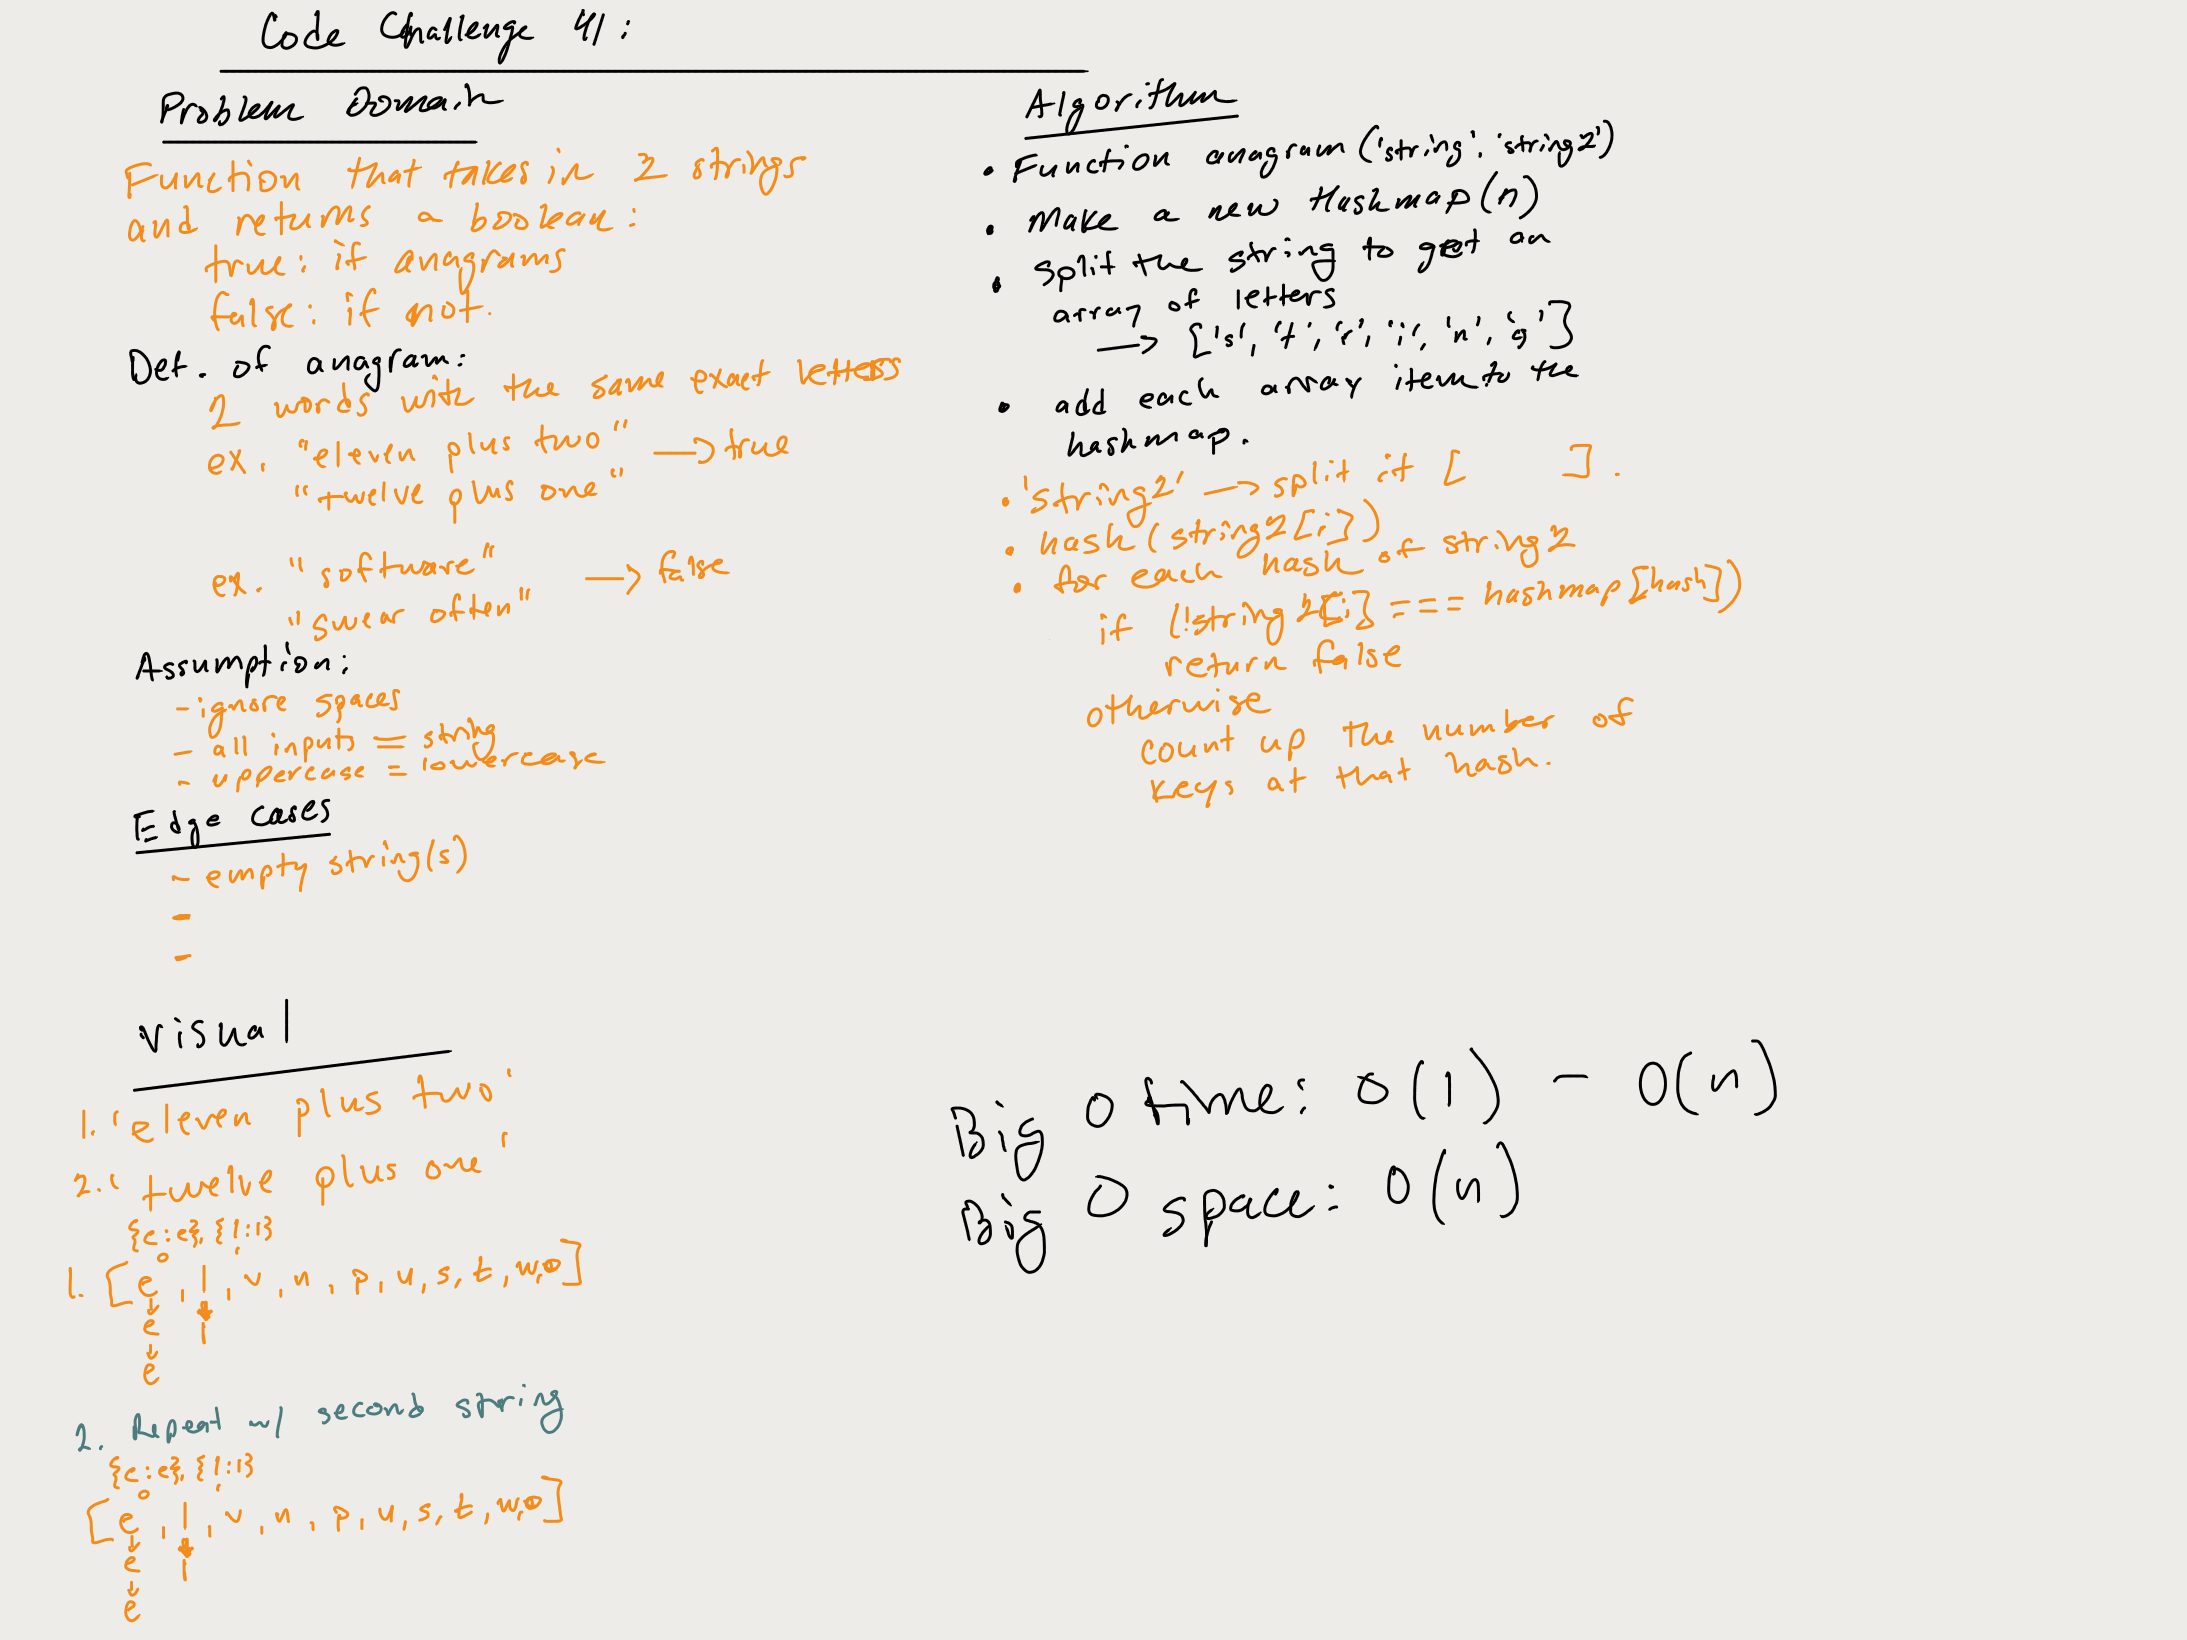 Code Challenge 41:
Problem Domain
Function that takes in 2 strings
and returns a boolean:
true: if anagrams
false: if not.
Def. of anagram:
2 words with the same exact letters
ex. "eleven plus two" → true
"twelve plus one"
ex. "software" → false
"swear often"
Assumption:
- ignore spaces
- all inputs = string
- uppercase = lowercase
Edge cases
- empty string(s)
-
-
visual
1. 'eleven plus two'
2. 'twelve plus one'
{e:e}, {l:l}
0 1
1. [e, l, v, n, p, u, s, t, w, o]
e l
e
2. Repeat w/ second string
{e:e}, {l:l}
0 1
[e, l, v, n, p, u, s, t, w, o]
e l
e
Algorithm
• Function anagram('string', 'string2')
• Make a new Hashmap(n)
• split the string to get an
array of letters
→ ['s', 't', 'r', 'i', 'n', 'g']
• add each array item to the
hashmap.
• 'string2' → split it [ ].
• hash(string2[i])
• for each hash of string2
if (!string2[i] === hashmap[hash])
return false
otherwise
count up the number of
keys at that hash.
Big O time: O(1) - O(n)
Big O space: O(n)